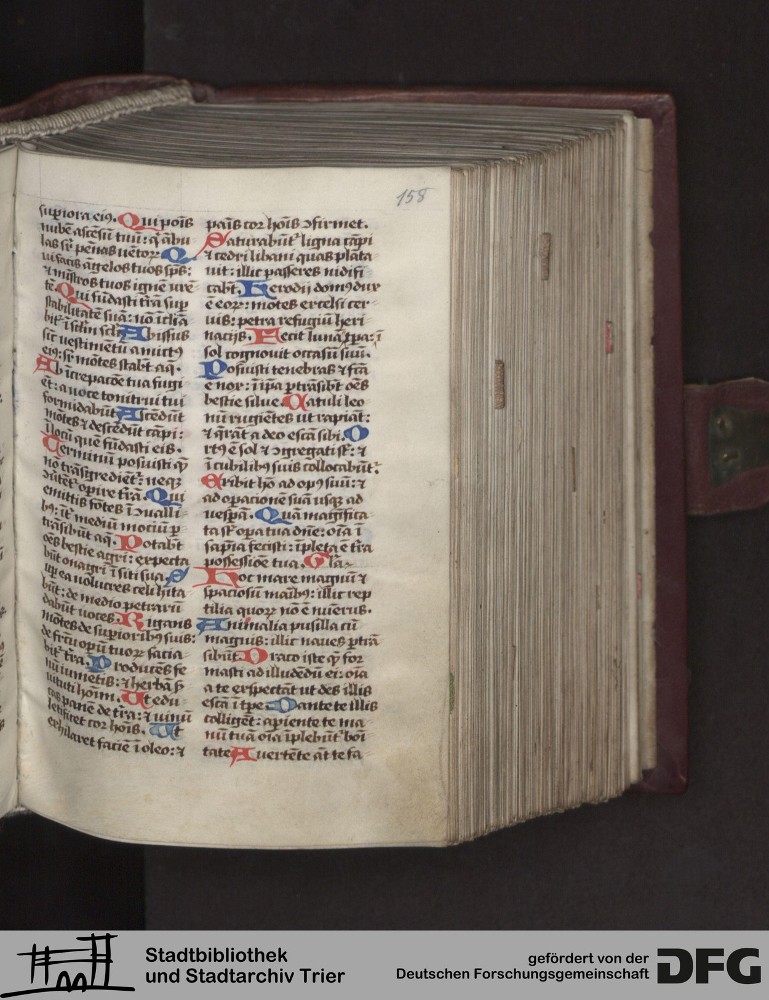 158
supiora eiꝰ. Qui ponis
nubē ascensū tuū: q̄ abu
las sr̄ pēnas uētor. Q
ui facis āgelos tuos spūs:
⁊ mīstros tuos ignē urē
tē. Qui fūdasti trā̄ sup
stabilitatē suā: nō īclīa
bit ī sclm̄ scli. Abissus
sic uestimētū amictꝰ
eiꝰ: sr̄ mōtes stabt aq̄.
Ab īcrepacōe tua fugi
ēt: a uoce tonitrui tui
formidabūt. Ascēdūt
mōtes ⁊ descēdūt cāpi:
ī locū quē fūdasti eis.
Terminū posuisti qͥ
nō trāsgrediēt: neqꝫ
ꝯūtēt opire trā̄. Qui
emittis fōtes ī ꝯualli
bꝰ: īt mediū mociū p
trāsibūt aq̄. Potabt
oēs bestie agri: expecta
būt onagri ī siti sua. S
up ea uolucres celi hīta
būt: de medio petrarū
dabūt uoces. Rigans
mōtes de supioribꝰ suis:
de frc̄u opū tuoꝝ sacia
bit trā̄. Producēs fe
nū iumētis: ⁊ herbā s̄
uituti hoīm. Ut edu
cas panē de trā̄: ⁊ uinū
letificet cor hoīs. Ut
exhilaret faciē ī oleo: ⁊
panis cor hoīs ꝯfirmet.
Saturabūt̄ ligna cāpi
⁊ cedri libani quas plāta
uit: illic passeres nidifi
cabt. Herodij domꝰ dux
ē eoꝝ: mōtes excelsi cer
uis: petra refugiū heri
nacijs. Fecit lunā ī tpa:
sol cognouit occasū suū.
Posuisti tenebras ⁊ fc̄a
ē nox: ī ipa ptrāsibt oēs
bestie silue. Catuli leo
nū rugiētes ut rapiāt:
⁊ q̄rāt a deo escā sibi. O
rtꝰ ē sol ⁊ ꝯgregati st̄: ⁊
ī cubilibꝰ suis collocabūt̄.
Exibit hō ad opꝰ suū: ⁊
ad opacionē suā usqꝫ ad
uespā. Quā magīfica
ta st̄ opa tua dn̄e: oīa ī
sapīa fecisti: īpleta ē tr̄a
possessiōe tua. Gla
Hoc mare magnū ⁊
spaciosū maībꝰ: illic rep
tilia quoꝝ nō ē nūerus.
Animalia pusilla cū
magnis: illic naues ptrā
sibūt. Draco iste qͥ for
masti ad illudēdū ei: oīa
a te expectāt ut des illis
escā ī tpe. Dante te illis
colligēt: apiente te ma
nū tuā oīa īplebūt̄ boī
tate. Auertēte āt te fa
Stadtbibliothek
und Stadtarchiv Trier
gefördert von der
Deutschen Forschungsgemeinschaft
DFG